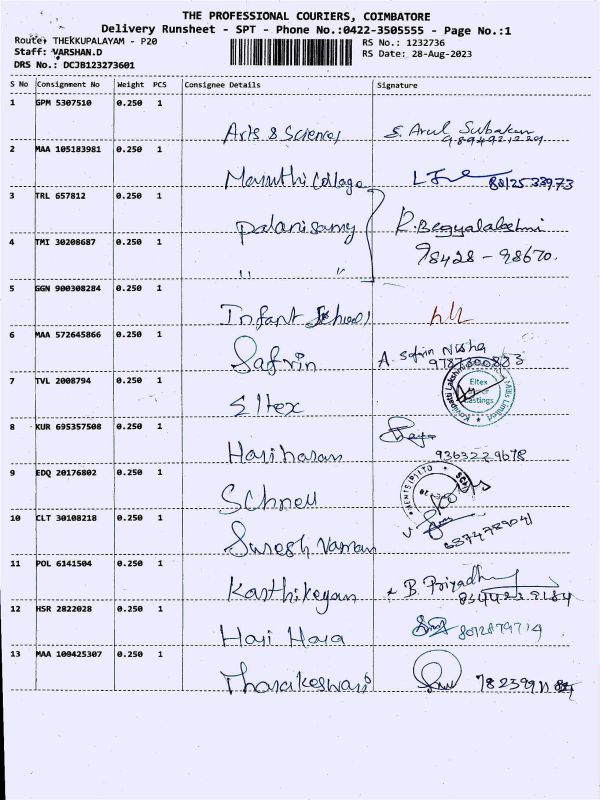 THE PROFESSIONAL COURIERS, COIMBATORE
Delivery Runsheet - SPT - Phone No.:0422-3505555 - Page No.:1
Route: THEKKUPALAYAM - P20
RS No.: 1232736
Staff: VARSHAN.D
RS Date: 28-Aug-2023
DRS No.: DCJB123273601
S No Consignment No Weight PCS Consignee Details Signature
1 GPM 5307510 0.250 1
Arts & Sciences S. Arul Subakan
2 MAA 105183981 0.250 1
Maruthi College 88125 33973
3 TRL 657812 0.250 1
palanisamy R. Begyalakshmi
4 TMI 30208687 0.250 1
98428 - 98670.
" "
5 GGN 900308284 0.250 1
Infant School
6 MAA 572645866 0.250 1
Safrin A. Safrin Nisha
9787300833
7 TVL 2008794 0.250 1
Eltex
Eltex
8 KUR 695357508 0.250 1
Hariharan 9363229678
9 EDQ 20176802 0.250 1
Schnell
10 CLT 30108218 0.250 1
Suresh Varman 6374789041
11 POL 6141504 0.250 1
Karthikeyan B. Priyadh
12 HSR 2822028 0.250 1
Hari Hara 8012879714
13 MAA 100425307 0.250 1
Tharakeswari